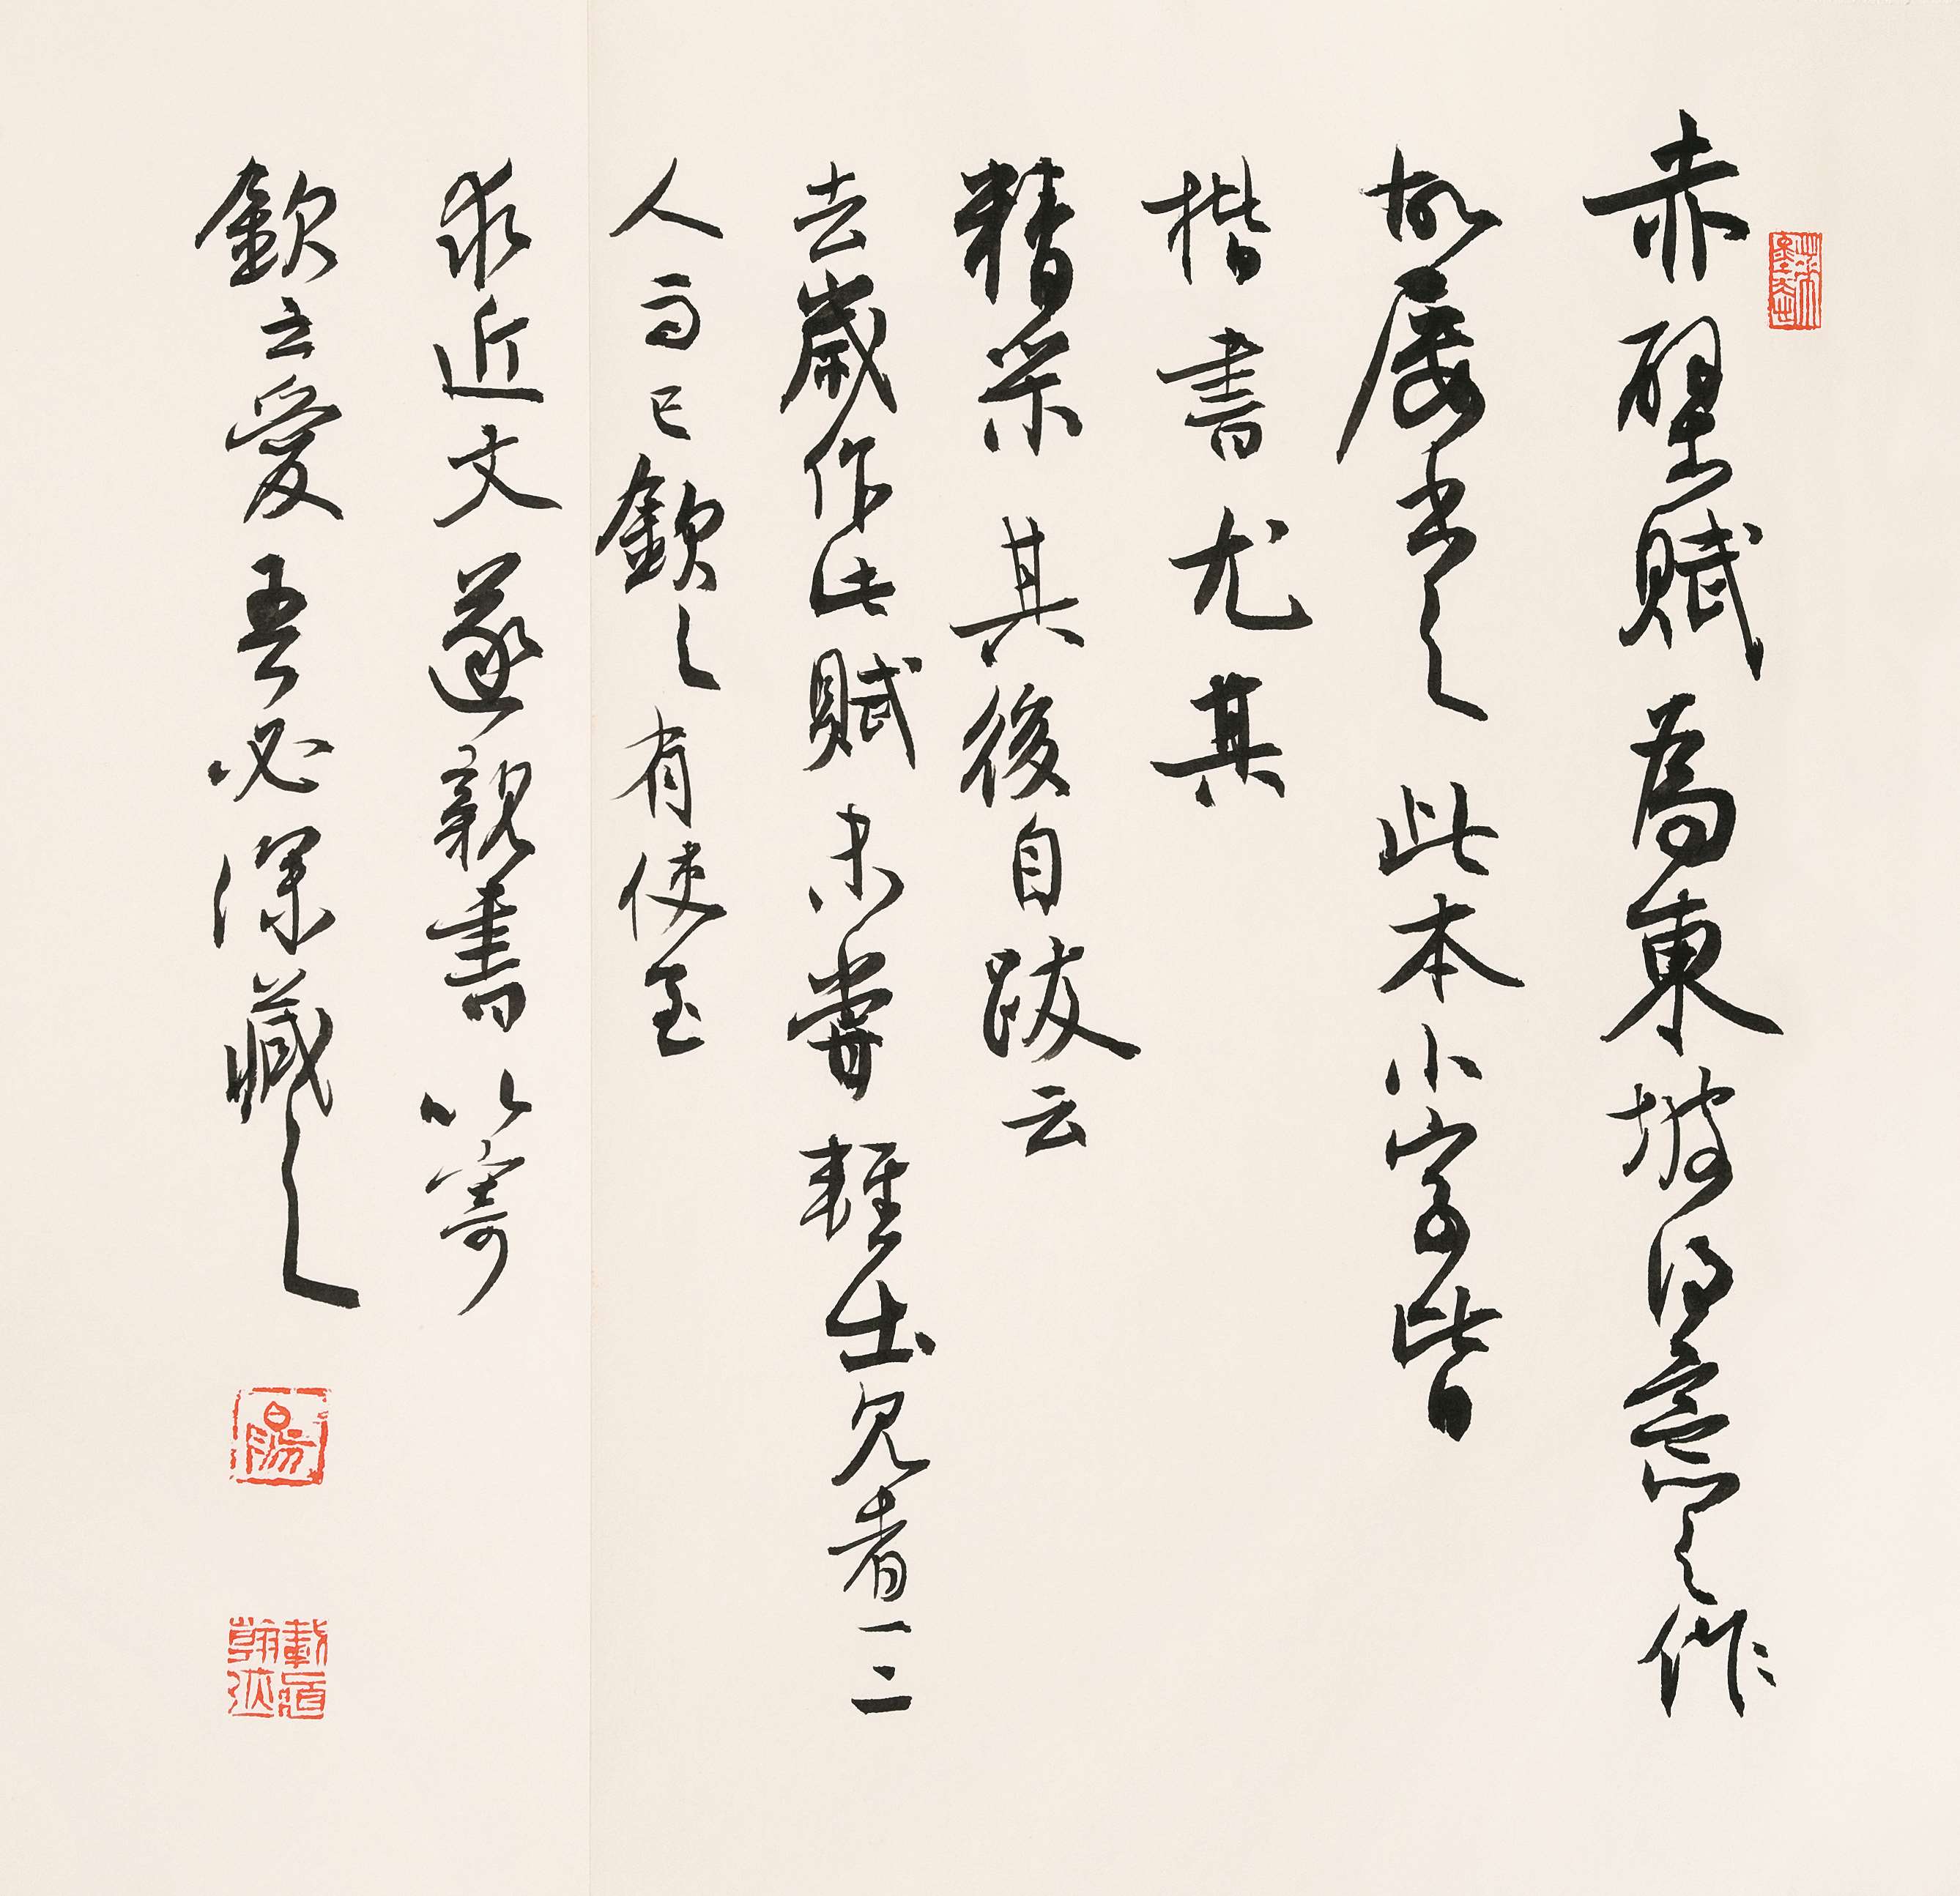 赤壁賦為東坡得意之作
故屢書之此本小字皆
楷書尤其
精采其後自跋云
去歲作此賦未嘗輕出見者一二
人而已欽之有使至
求近文遂親書以寄
欽之愛吾必深藏之